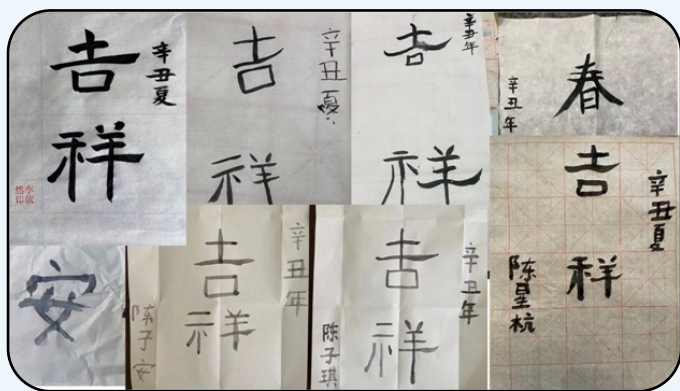 吉祥
辛丑夏
吉祥
辛丑夏
吉祥
辛丑年
春
辛丑年
安
吉祥
辛丑年
陈子安
吉祥
辛丑年
陈子琪
吉祥
辛丑夏
陈星杭